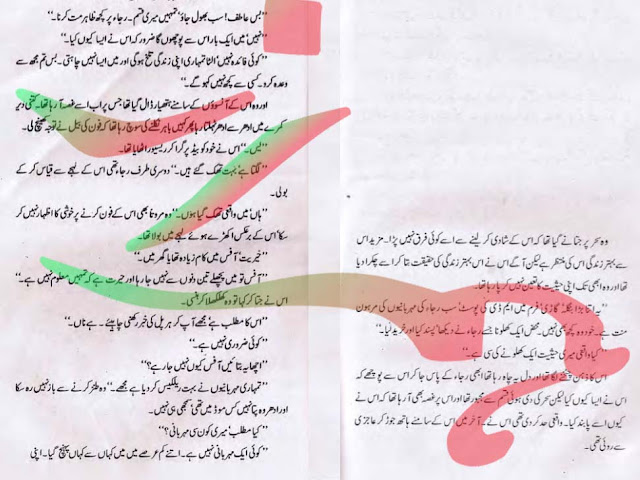 وہ سحر پر جتانے گیا تھا کہ اس کے شادی کر لینے سے اسے کوئی فرق نہیں پڑا۔ مزید اس
سے بہتر زندگی اس کی منتظر ہے لیکن آگے اس نے اس بہتر زندگی کی حقیقت بتا کر اسے چکرا دیا
تھا اور وہ ابھی تک اپنی حیثیت کا تعین نہیں کر پا رہا تھا۔
”یہ اتنا بڑا بنگلہ‘ گاڑی‘ فرم میں ایم ڈی کی پوسٹ‘ سب رجاء کی مہربانیوں کی مرہون
منت ہے۔ خود وہ کچھ بھی نہیں۔ محض ایک کھلونا جسے رجاء نے دیکھا‘ پسند کیا اور خرید لیا۔“
”کیا واقعی میری حیثیت ایک کھلونے کی سی ہے۔“
اس کا ذہن چٹخنے لگا تھا اور دل یہ چاہ رہا تھا ابھی رجاء کے پاس جا کر اس سے پوچھے کہ
اس نے ایسا کیوں کیا لیکن سحر کی دی ہوئی قسم سے مجبور تھا اور اس پر غصہ بھی آ رہا تھا کہ اس نے
کیوں اسے پابند کیا۔ واقعی حد کر دی تھی اس نے۔ آخر میں اس کے سامنے ہاتھ جوڑ کر عاجزی
سے روئی تھی۔
”بس عاطف! سب بھول جاؤ‘ تمہیں میری قسم۔ رجاء پر کچھ ظاہر مت کرنا۔“
”نہیں‘ میں ایک بار اس سے پوچھوں گا ضرور کہ اس نے ایسا کیوں کیا۔“
”کوئی فائدہ نہیں‘ الٹا تمہاری اپنی زندگی تلخ ہو گی اور میں ایسا نہیں چاہتی۔ بس تم مجھ سے
وعدہ کرو۔ کسی سے کچھ نہیں کہو گے۔“
اور وہ اس کے آنسوؤں کے سامنے ہتھیار ڈال گیا تھا جس پر اب اسے غصہ آ رہا تھا۔ کتنی دیر
کمرے میں ادھر سے ادھر ٹہلتا رہا پھر کہیں باہر نکلنے کی سوچ رہا تھا کہ فون کی بیل نے توجہ کھینچ لی۔
”یس۔“ اس نے خود کو بیڈ پر گرا کر ریسیور اٹھایا تھا۔
”لگتا ہے‘ بہت تھک گئے ہیں۔“ دوسری طرف رجاء تھی اس کے لہجے سے قیاس کر کے
بولی۔
”ہاں‘ میں واقعی تھک گیا ہوں۔“ وہ مروتاً بھی اس کے فون کرنے پر خوشی کا اظہار نہیں کر
سکا‘ اس کے برعکس اکھڑے ہوئے لہجے میں بولا تھا۔
”خیریت‘ آفس میں کام زیادہ تھا یا گھر میں۔“
”آفس تو میں پچھلے تین دنوں سے نہیں جا رہا اور حیرت ہے کہ تمہیں معلوم نہیں ہے۔“
اس نے جتا کر کہا تو وہ کھلکھلا کر ہنسی۔
”اس کا مطلب ہے‘ مجھے آپ کی ہر پل کی خبر رکھنی چاہیئے۔ ہے ناں۔“
”کوئی ضروری نہیں ہے۔“
”اچھا یہ بتائیں آفس کیوں نہیں جا رہے؟“
”تمہاری مہربانیوں نے بہت ریلیکس کر دیا ہے مجھے۔“ وہ طنز کرنے سے باز نہیں رہ سکا
اور ادھر وہ پتا نہیں کس موڈ میں تھی‘ سمجھی ہی نہیں۔
”کیا مطلب‘ میری کون سی مہربانی؟“
”کوئی ایک مہربانی نہیں ہے۔ اتنے کم عرصے میں میں کہاں سے کہاں پہنچ گیا۔ اپنی